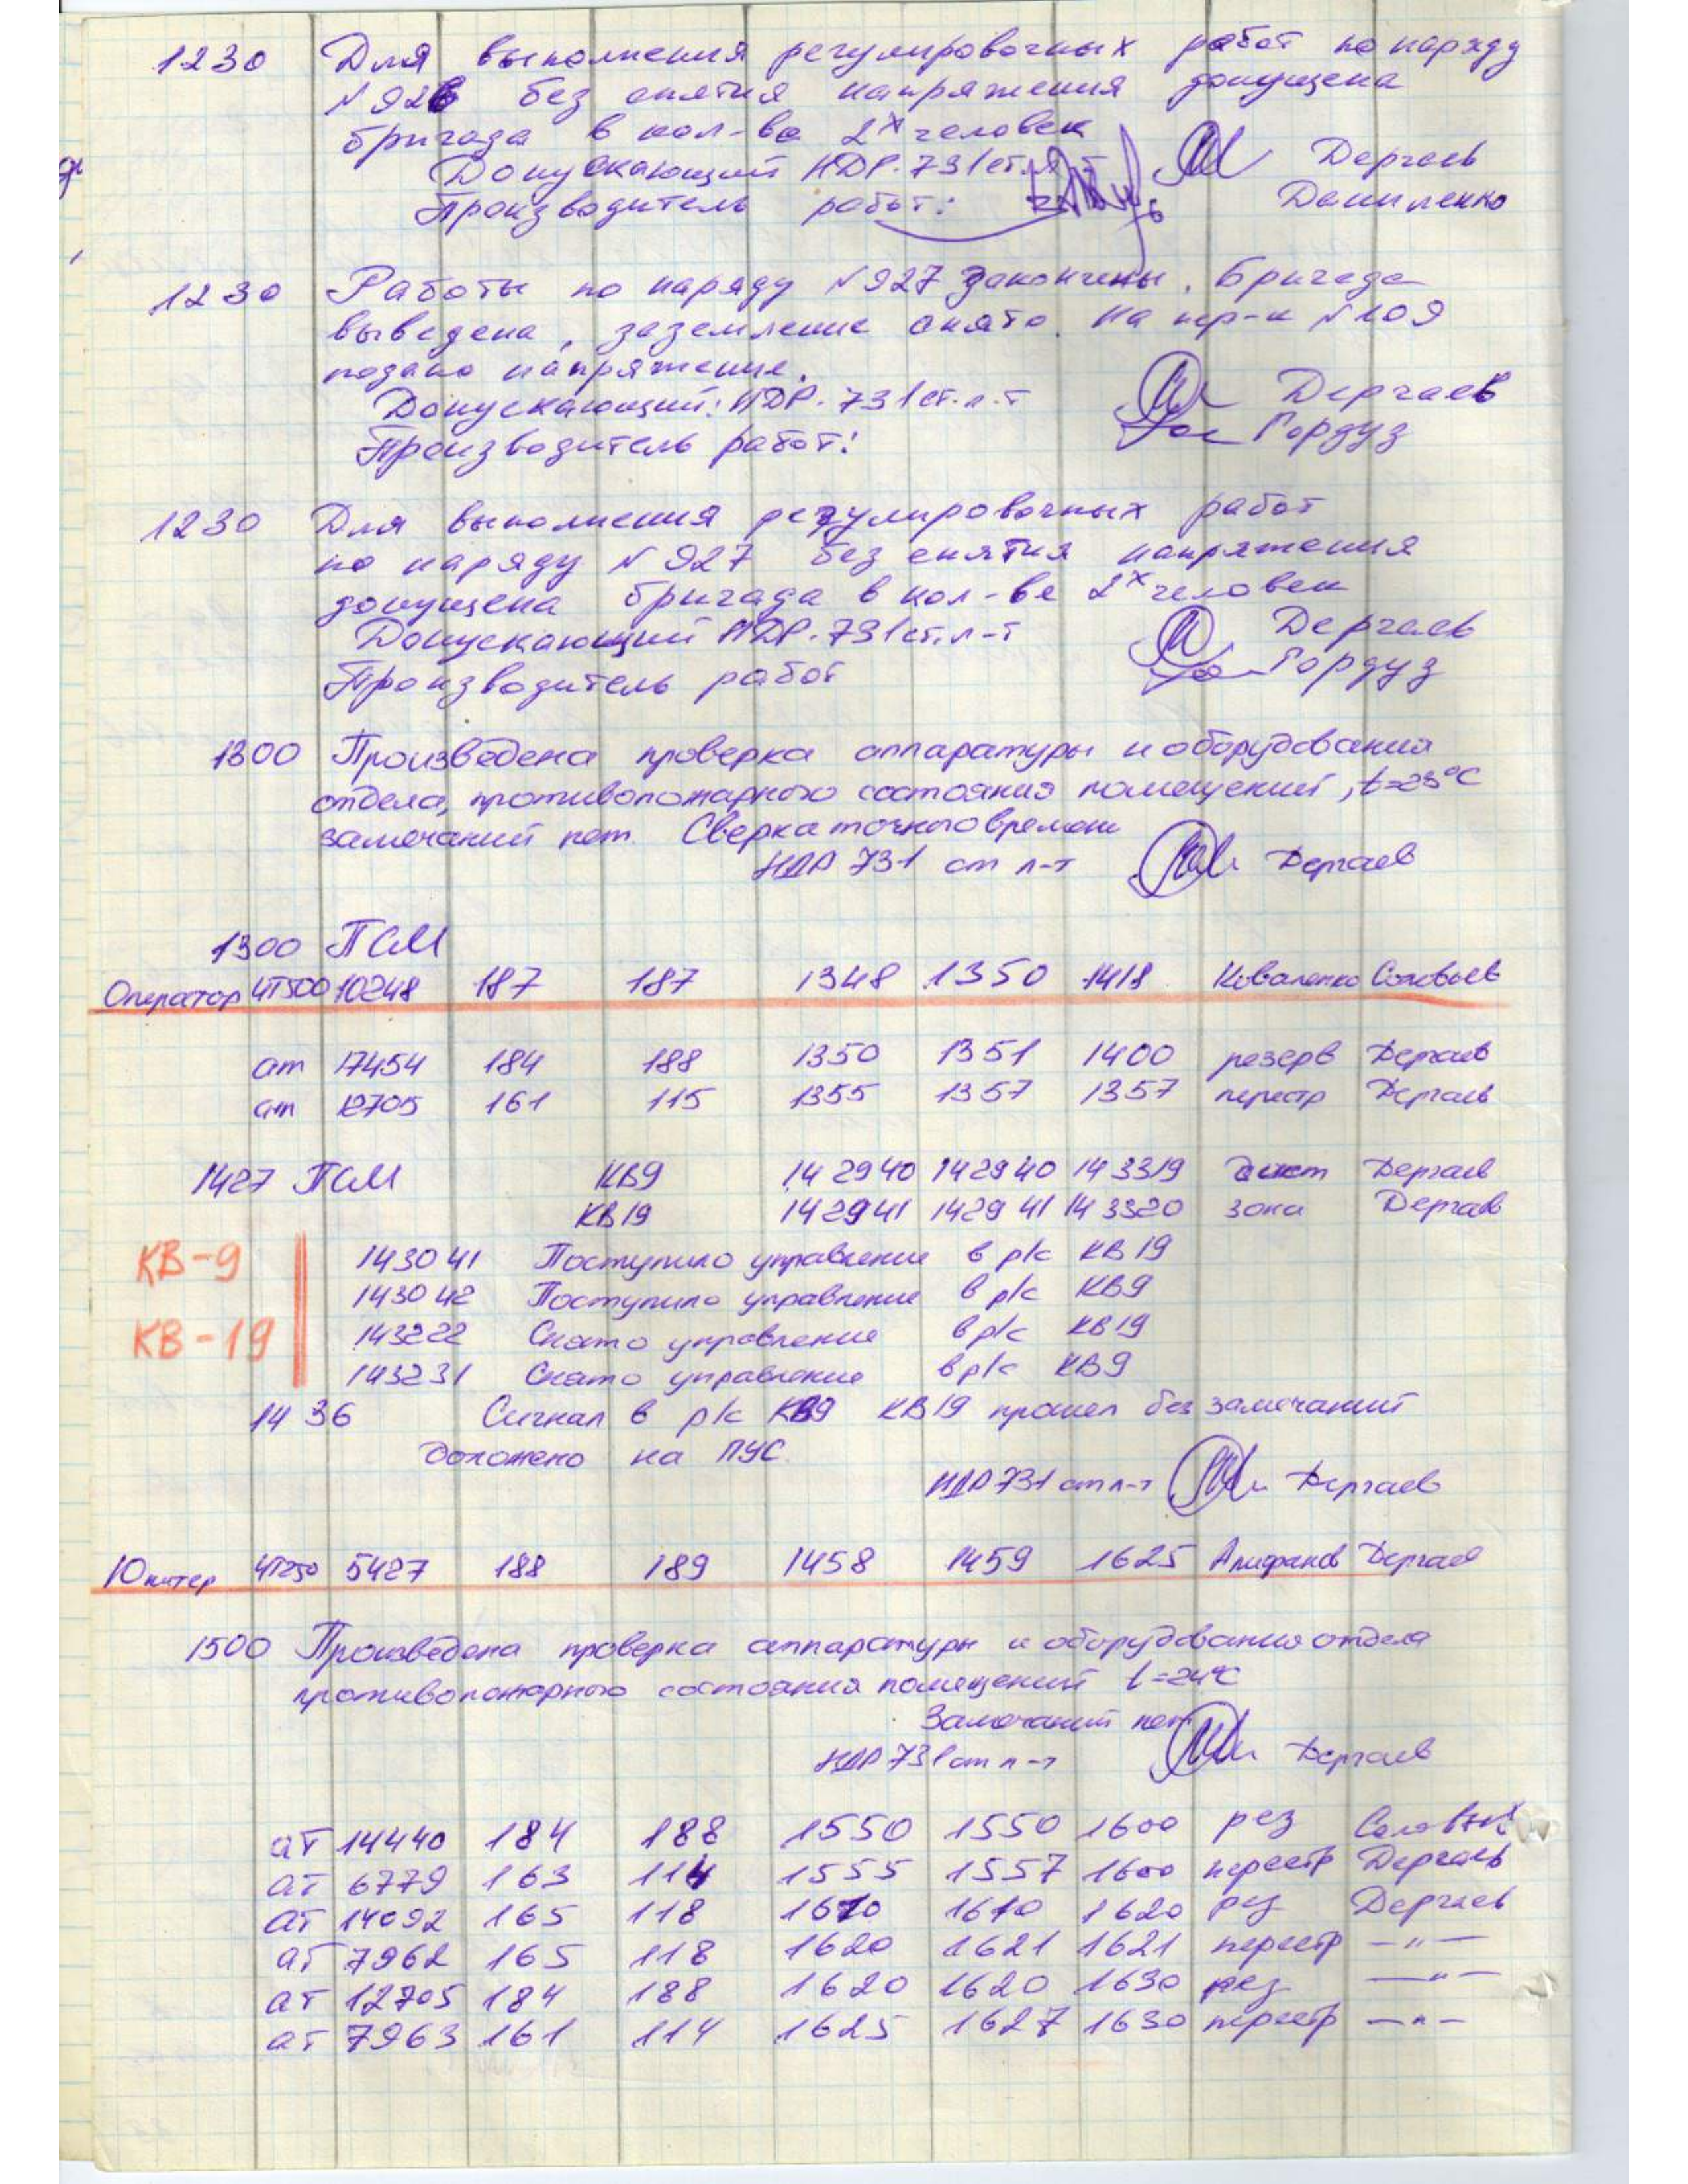 1230 Для выполнения регулировочных работ по наряду
N 926 без снятия напряжения допущена
бригада в кол-ве 2х человек
Допускающий НДР-731 ст.л-т Дергаев
Производитель работ: Даниленко
1230 Работы по наряду N 927 закончены. Бригада
выведена, заземление снято. На пер-к N 109
подано напряжение.
Допускающий: НДР-731 ст.л-т Дергаев
Производитель работ: Гордуз
1230 Для выполнения регулировочных работ
по наряду N 927 без снятия напряжения
допущена бригада в кол-ве 2х человек
Допускающий НДР-731 ст.л-т Дергаев
Производитель работ Гордуз
1300 Произведена проверка аппаратуры и оборудования
отдела, противопожарного состояния помещений, t=23°C
замечаний нет. Сверка точного времени
НДР 731 ст л-т Дергаев
1300 ПСМ
Оператор ЧТ500 10248 187 187 1348 1350 1418 Коваленко Соловьев
ат 17454 184 188 1350 1351 1400 резерв Дергаев
ат 12705 161 115 1355 1357 1357 перестр Дергаев
1427 ПСМ КВ9 14 29 40 14 29 40 14 33 19 Дергаев
КВ19 14 29 41 14 29 41 14 33 20 зона Дергаев
КВ-9
КВ-19
14 30 41 Поступило управление в р/с КВ19
14 30 42 Поступило управление в р/с КВ9
14 32 22 Снято управление в р/с КВ19
14 32 31 Снято управление в р/с КВ9
14 36 Сигнал в р/с КВ9 КВ19 прошел без замечаний
Доложено на ПУС.
НДР 731 ст л-т Дергаев
Юпитер ЧТ250 5427 188 189 1458 1459 1625 Алифанов Дергаев
1500 Произведена проверка аппаратуры и оборудования отдела
противопожарного состояния помещений t=24°C
Замечаний нет
НДР 731 ст л-т Дергаев
ат 14440 184 188 1550 1550 1600 рез
ат 6779 163 114 1555 1557 1600 перестр Дергаев
ат 14092 165 118 1610 1610 1620 рез Дергаев
ат 7962 165 118 1620 1621 1621 перестр —"—
ат 12705 184 188 1620 1620 1630 рез —"—
ат 7963 161 114 1625 1627 1630 перестр —"—